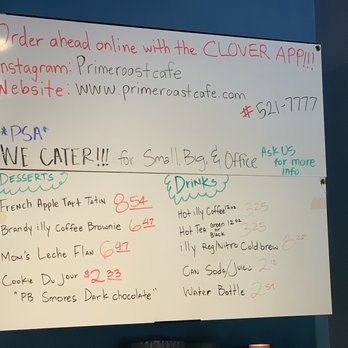 Order ahead online with the CLOVER APP!!!
Instagram: Primeroastcafe
Website: www.primeroastcafe.com
# 521-7777
*PSA*
WE CATER!!! for Small, Big, & Office
Ask US for more info
DESSERTS
French Apple Tart Tatin 8.54
Brandy illy Coffee Brownie 6.47
Mom's Leche Flan 6.47
Cookie Du Jour $2.33
"PB Smores Dark chocolate"
Drinks
Hot illy Coffee 12oz 3.25
Hot Tea Green or Black 12oz 3.25
illy Reg/Nitro Cold brew
Can Soda/Juices
Water Bottle